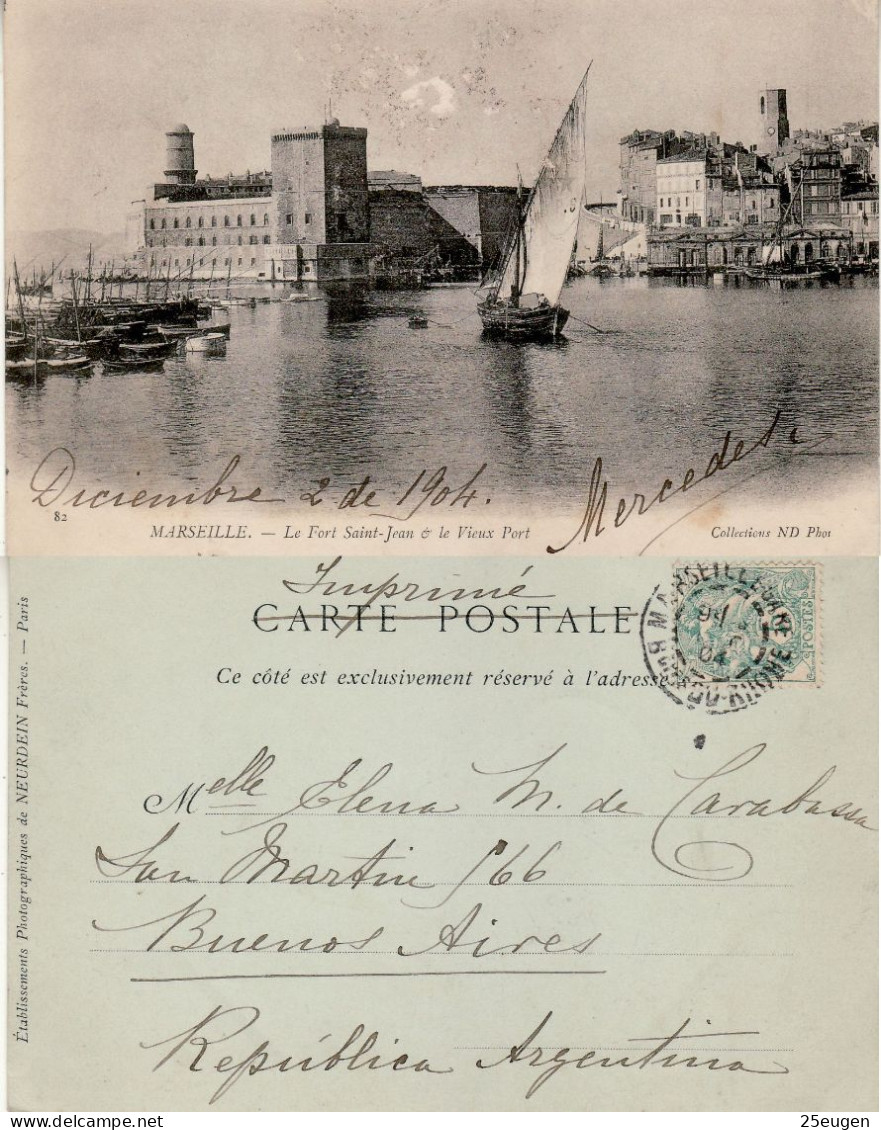 Diciembre 2 de 1904.
Mercedes
82
MARSEILLE. — Le Fort Saint-Jean & le Vieux Port
Collections ND Phot
Imprimé
CARTE POSTALE
Ce côté est exclusivement réservé à l'adresse
MARSEILLE GARE
04
BOUCHES-DU-RHONE
POSTES
Établissements Photographiques de NEURDEIN Frères. — Paris
Melle Elena M. de Carabassa
San Martin 566
Buenos Aires
República Argentina
delcampe.net
25eugen